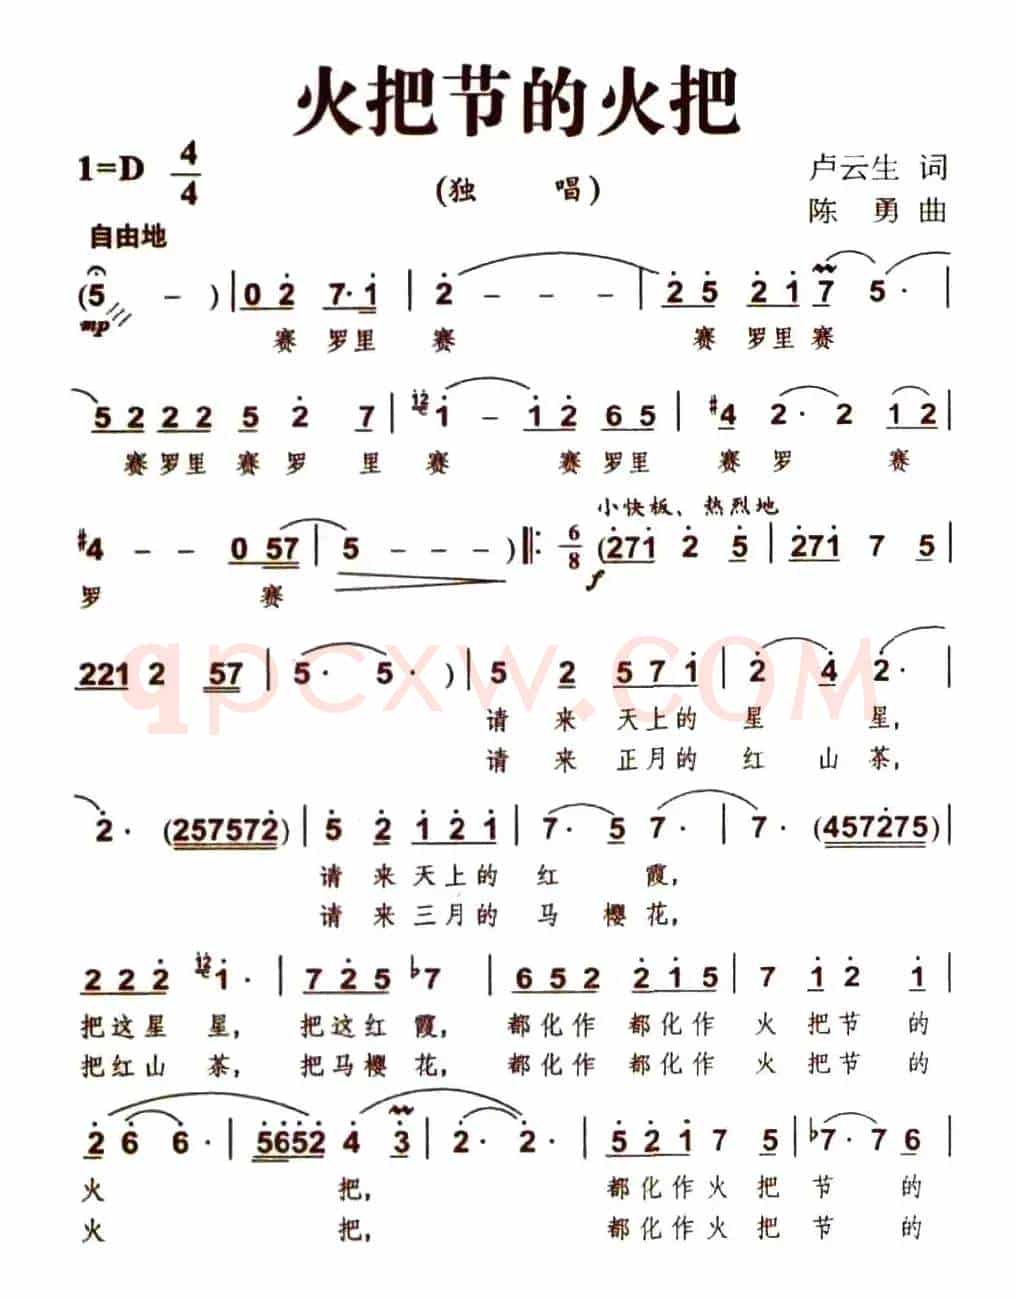 火把节的火把
1=D 4/4
(独 唱)
卢云生 词
陈 勇 曲
自由地
(5 - ) | 0 2 7· 1 | 2 - - - | 2 5 2 1 7 5· |
mp
赛 罗里 赛 赛 罗里 赛
5 2 2 2 5 2 7 | 1 - 1 2 6 5 | #4 2· 2 1 2 |
赛 罗里 赛 罗 里 赛 赛 罗里 赛 罗 赛
小快板、热烈地
#4 - - 0 57 | 5 - - - ) ‖: 6/8 (271 2 5 | 271 7 5 |
f
罗 赛
221 2 57 | 5· 5· ) | 5 2 5 7 1 | 2 4 2· |
请 来 天上的 星 星,
请 来 正月的 红 山 茶,
2· (257572) | 5 2 1 2 1 | 7· 5 7· | 7· (457275) |
请 来 天上的 红 霞,
请 来 三月的 马 樱 花,
2 2 2 1· | 7 2 5 b7 | 6 5 2 2 1 5 | 7 1 2 1 |
把这星 星, 把这红 霞, 都化作 都化作 火 把节 的
把红山 茶, 把马樱 花, 都化作 都化作 火 把节 的
2 6 6· | 5652 4 3 | 2· 2· | 5 2 1 7 5 | b7· 7 6 |
火 把, 都化作火 把 节 的
火 把, 都化作火 把 节 的
qpcxw.com